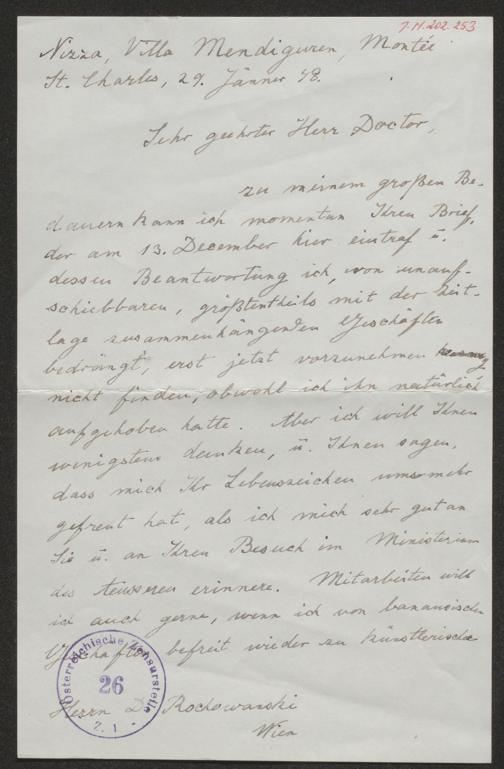 J.N. 202.253
Nizza, Villa Mendiguren, Montée
St. Charles, 29. Jänner 48.
Sehr geehrter Herr Doctor,
zu meinem großen Be-
dauern kann ich momentan Ihren Brief,
der am 13. December hier eintraf u.
dessen Beantwortung ich, von unauf-
schiebbaren, größtentheils mit der Zeit-
lage zusammenhängenden Geschäften
bedrängt, erst jetzt vorzunehmen
nicht finden, obwohl ich ihn natürlich
aufgehoben hatte. Aber ich will Ihnen
wenigstens danken, u. Ihnen sagen,
dass mich Ihr Lebenszeichen umso mehr
gefreut hat, als ich mich sehr gut an
Sie u. an Ihren Besuch im Ministerium
des Äusseren erinnere. Mitarbeiten will
ich auch gerne, wenn ich von banausischen
Geschäften befreit wieder zu künstlerische
Herrn Dr Rochowanski
Wien
Österreichische Zensurstelle
26
Z. 1